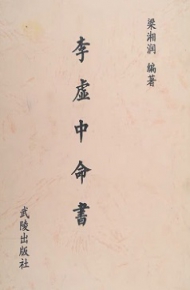 梁湘润 编著
李虛中命書
武陵出版社